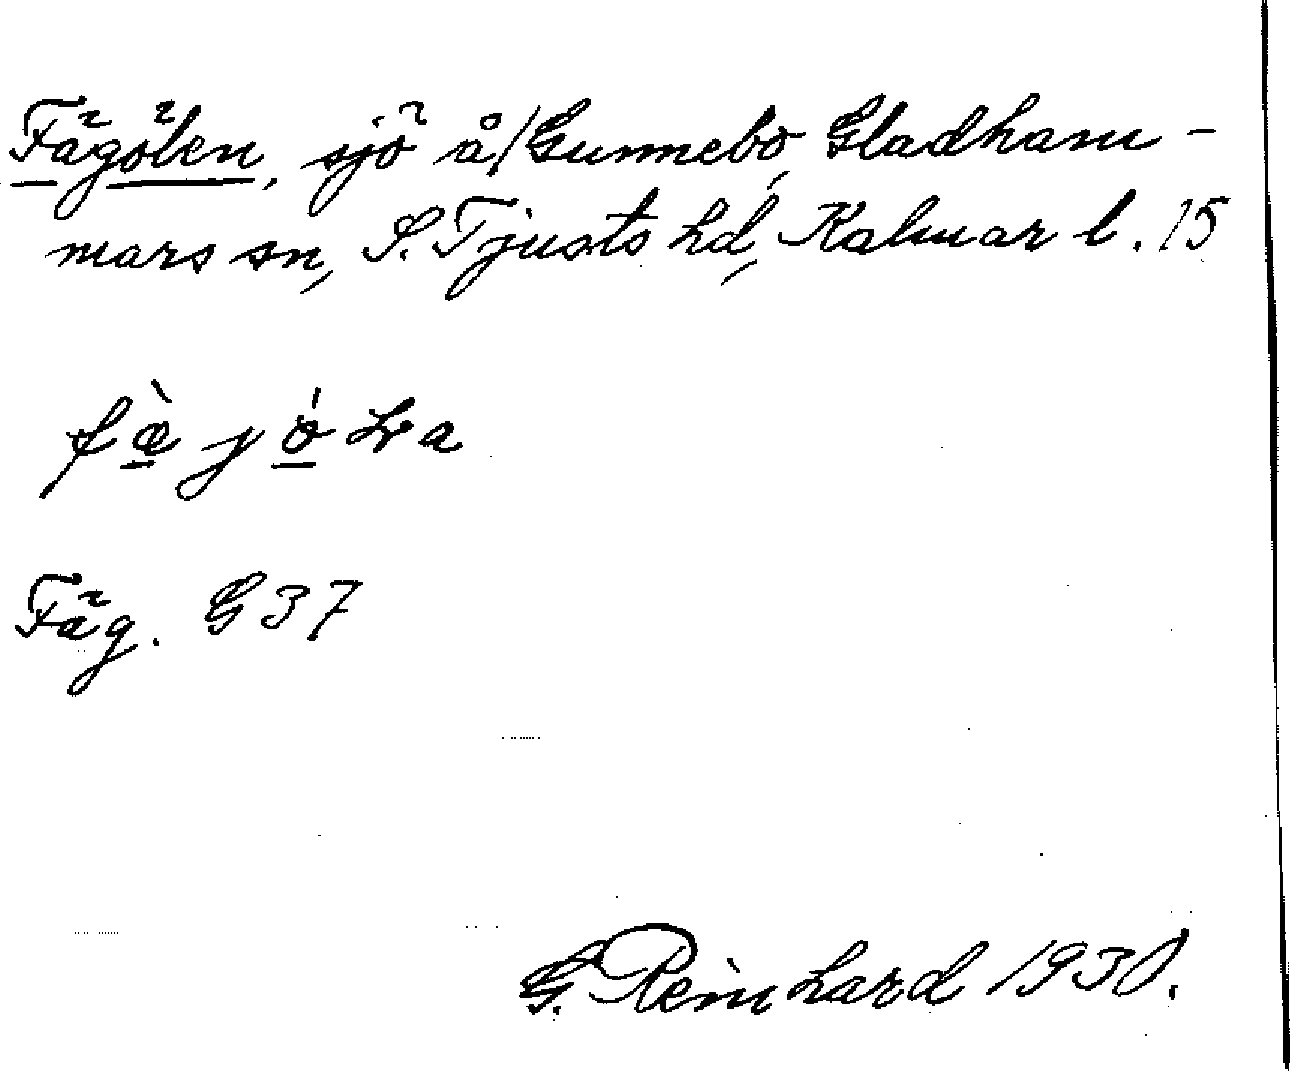 Fägölen, sjö å/Gunnebo, Gladham-
mars sn, S. Tjusts hd, Kalmar l. 15
Fäg. G 37
G. Reinhard 1930.